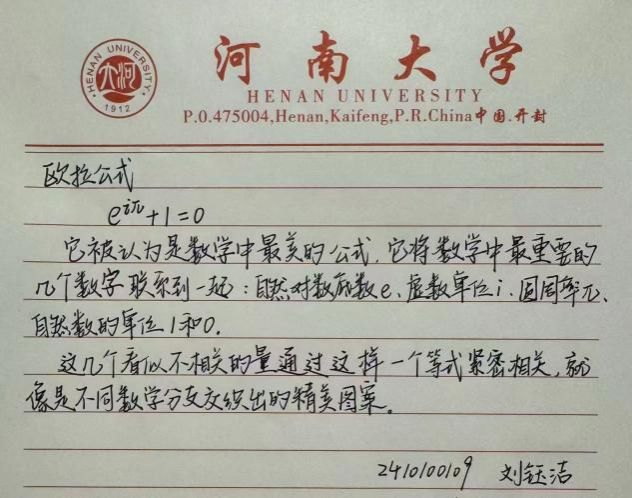 HENAN UNIVERSITY
大河
1912
河南大学
HENAN UNIVERSITY
P.O.475004,Henan,Kaifeng,P.R.China中国.开封
欧拉公式
e^{iπ}+1=0
它被认为是数学中最美的公式,它将数学中最重要的
几个数字联系到一起:自然对数的底数e、虚数单位i、圆周率π、
自然数的单位1和0.
这几个看似不相关的量通过这样一个等式紧密相关,就
像是不同数学分支交织出的精美图案。
2410100109 刘钰洁